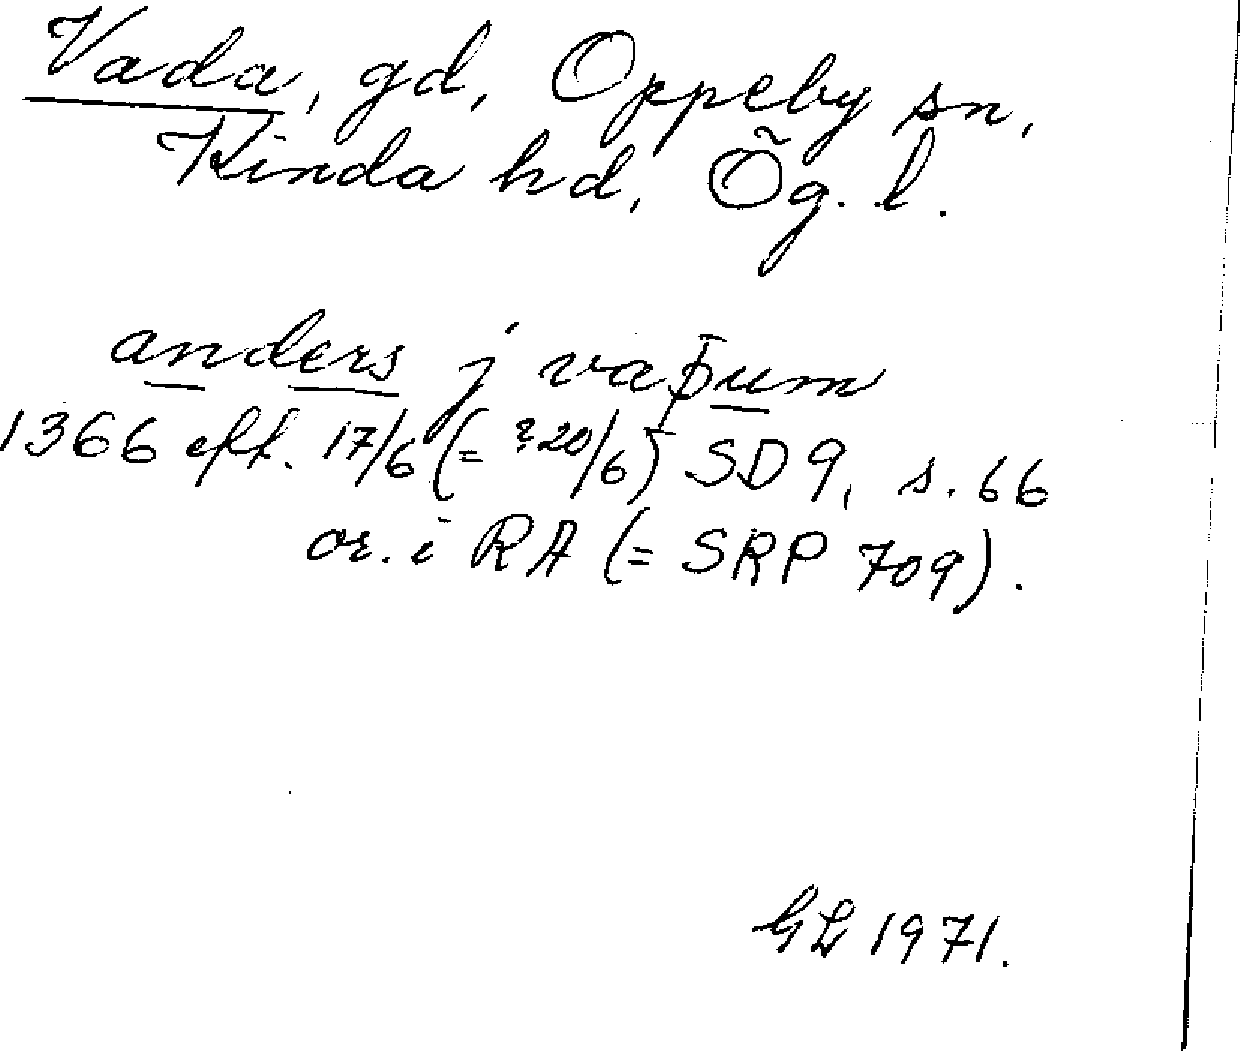 Vada, gd, Oppeby sn,
Kinda hd, Ög. l.
anders j vaþum
1366 eft. 17/6 (= ?20/6) SD 9, s. 66
or. i RA (= SRP 709).
GL 1971.